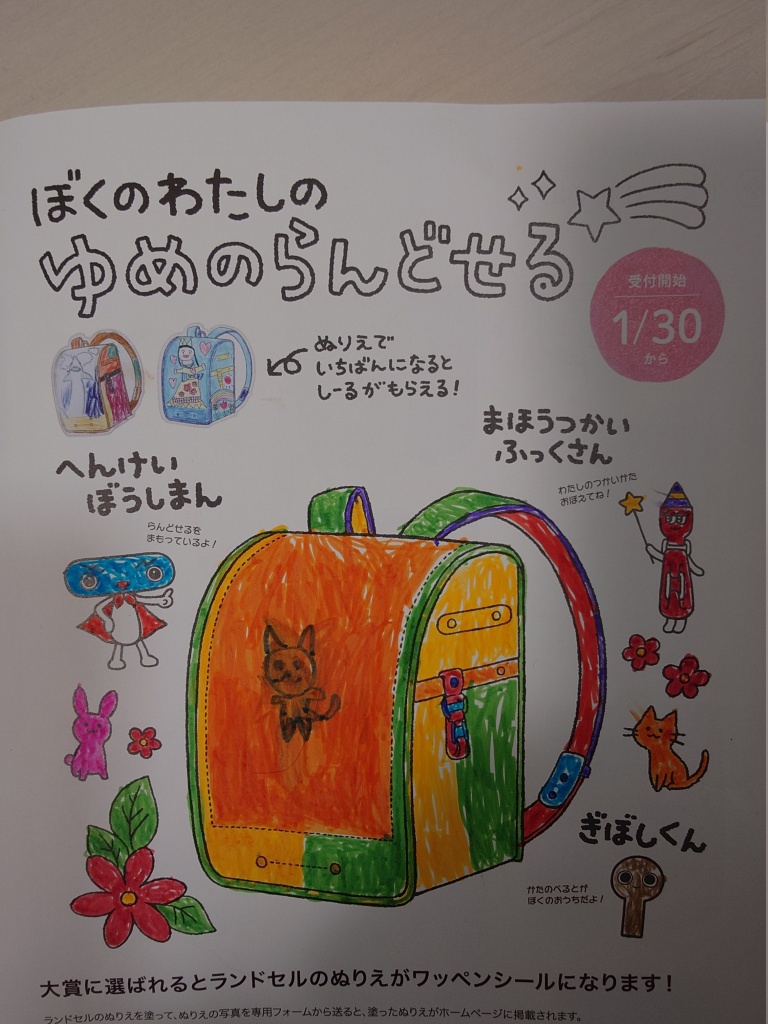 ぼくのわたしの
ゆめのらんどせる
受付開始
1/30
から
ぬりえで
いちばんになると
しーるがもらえる!
まほうつかい
ふっくさん
わたしのつかいかた
おぼえてね!
へんけい
ぼうしまん
らんどせるを
まもっているよ!
ぎぼしくん
かたのべるとが
ぼくのおうちだよ!
大賞に選ばれるとランドセルのぬりえがワッペンシールになります!
ランドセルのぬりえを塗って、ぬりえの写真を専用フォームから送ると、塗ったぬりえがホームページに掲載されます。